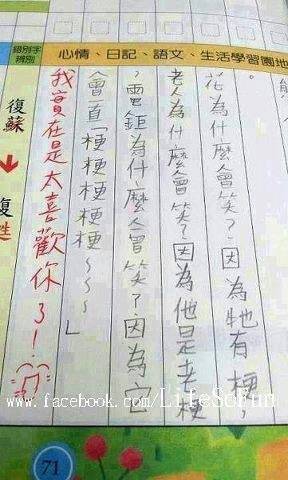 心情、日記、語文、生活學習園地
錯別字
辨別
花為什麼會笑?因為牠有梗,
老人為什麼會笑?因為他是老梗
,電鉅為什麼會笑?因為它
會一直「梗梗梗梗梗~~~」
我實在是太喜歡你了!
復蘇
↓
復甦
71
www.facebook.com/LifeSoFun